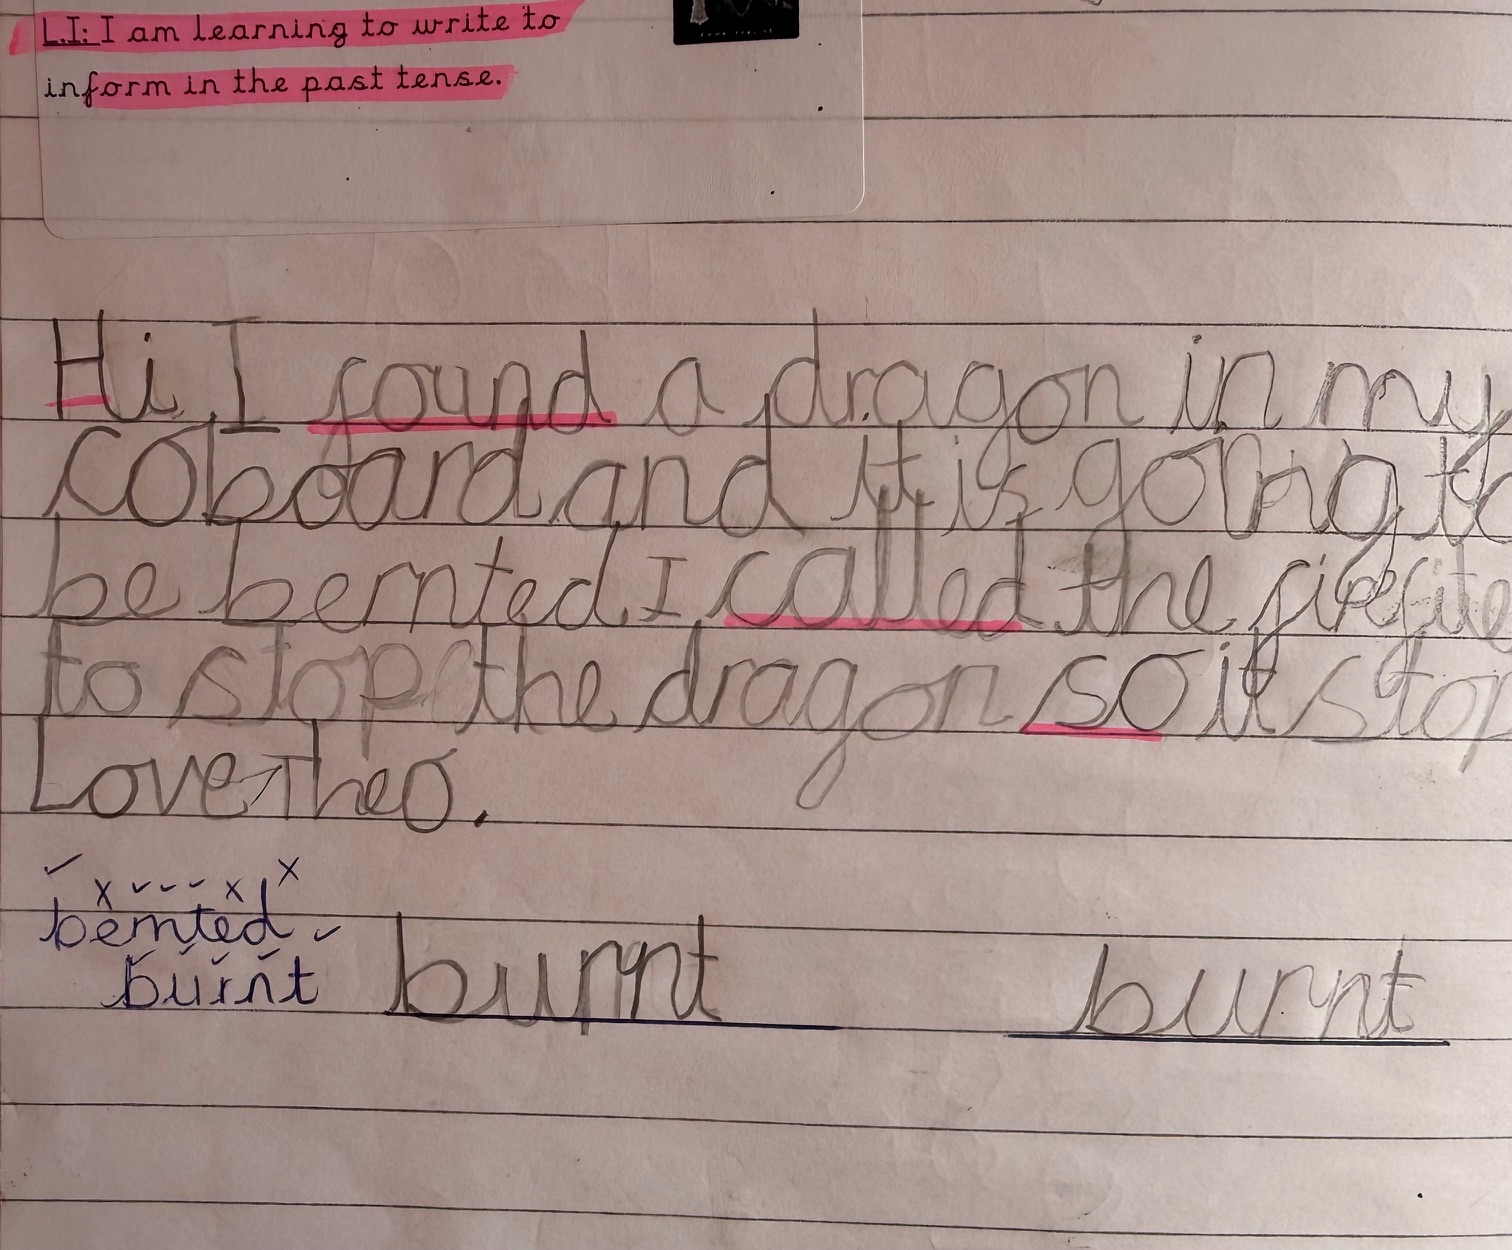 L.I: I am learning to write to
inform in the past tense.
Hi I found a dragon in my
coboard and it is going to
be bernted I called the
to stop the dragon so it stop
Love Theo.
bernted
burnt burnt burnt